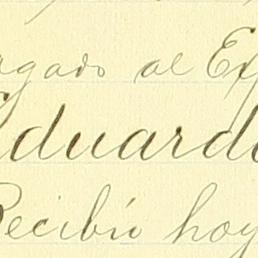 rgado al Ex
Eduardo
Recibí hoy